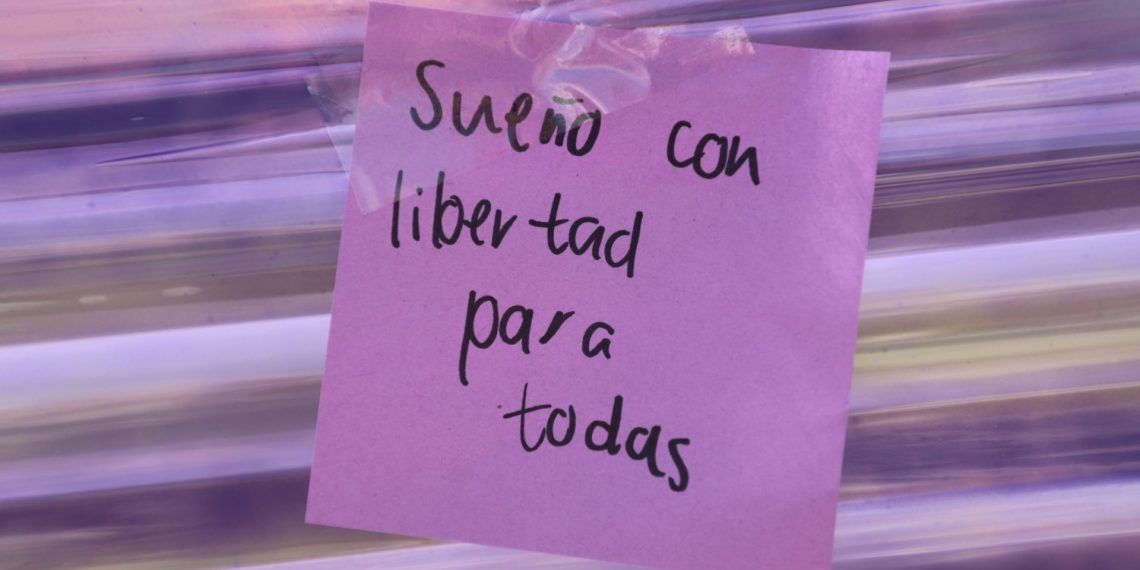 Sueño con
libertad
para
todas